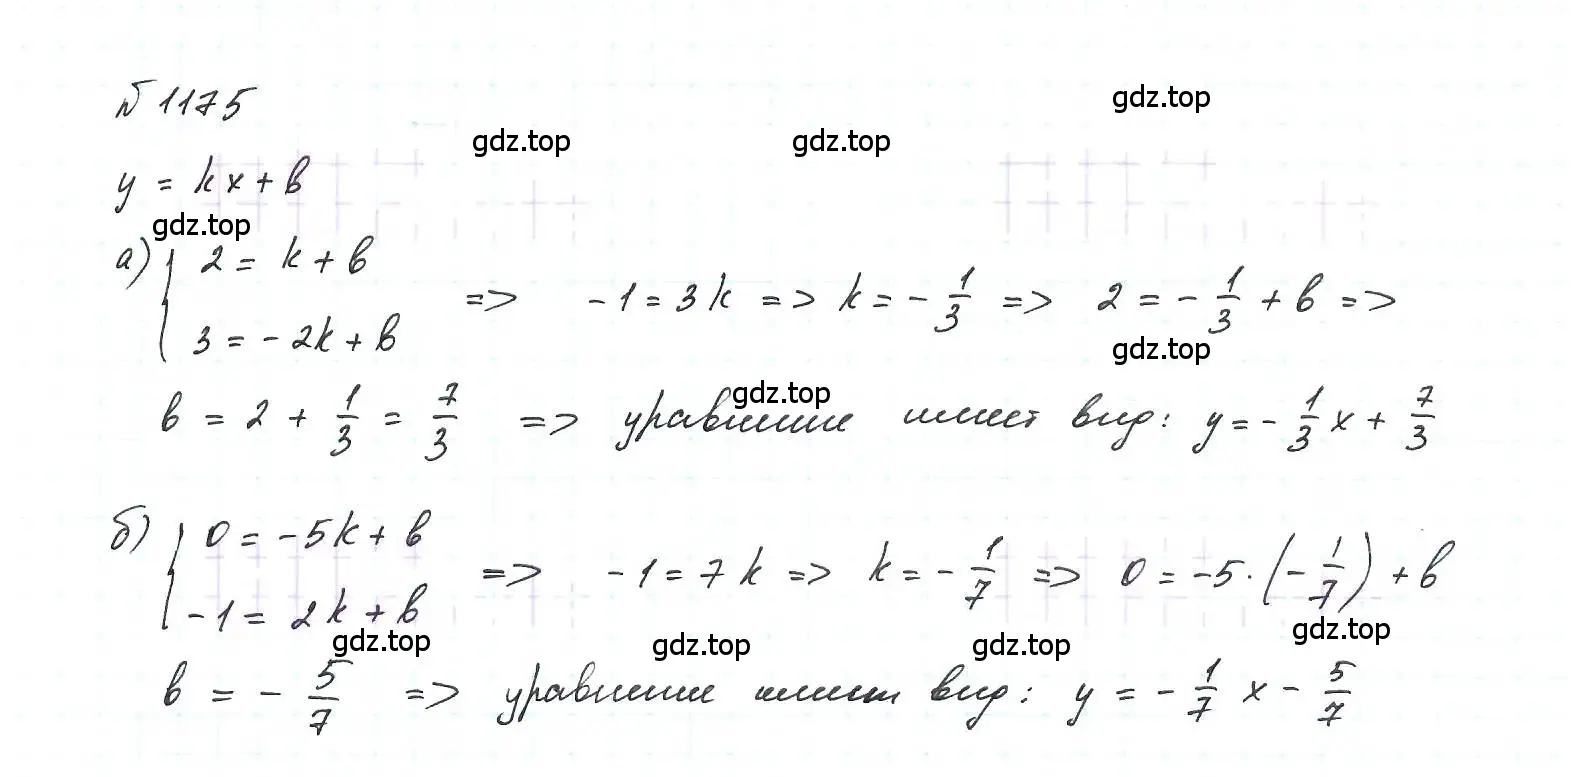 № 1175
gdz.top
gdz.top gdz.top
y = kx + b
gdz.top
а) { 2 = k + b
3 = -2k + b
=> -1 = 3k => k = -1/3 => 2 = -1/3 + b =>
gdz.top
gdz.top
b = 2 + 1/3 = 7/3 => уравнение имеет вид: y = -1/3 x + 7/3
б) { 0 = -5k + b
-1 = 2k + b
=> -1 = 7k => k = -1/7 => 0 = -5·(-1/7) + b
gdz.top gdz.top gdz.top gdz.top
b = -5/7 => уравнение имеет вид: y = -1/7 x - 5/7